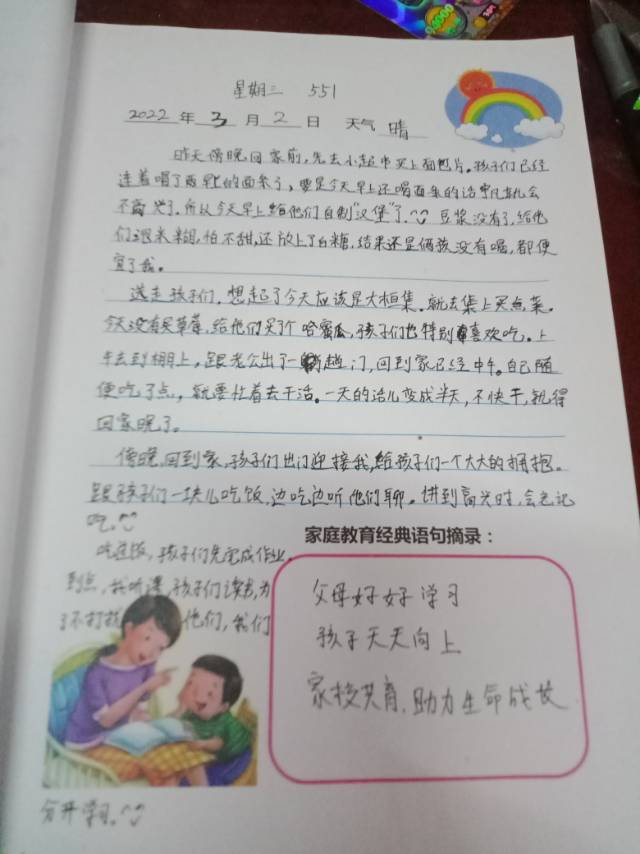 星期三 551
2022 年 3 月 2 日 天气 晴
昨天傍晚回家前,先去小超市买上面包片。孩子们已经
连着喝了两早的面条了,要是今天早上还喝面条的话
不高兴了。所以今天早上给他们自制“汉堡”了。^^ 豆浆没有了,给他
们 米糊,怕不甜,还放上了白糖,结果还是俩孩没有喝,都便
宜了我。
送走孩子们,想起了今天应该是大桓集。就去集上买点菜。
今天没有买草莓,给他们买了个哈密瓜,孩子们也特别喜欢吃。上
午去到棚上,跟老公出了一趟门,回到家已经中午。自己随
便吃了点,就要忙着去干活。一天的活儿变成半天,不快干,就得
回家晚了。
傍晚回到家,孩子们出门迎接我,给孩子们一个大大的拥抱。
跟孩子们一块儿吃饭,边吃边听他们聊。讲到高兴时,会忘记
吃。^^
吃过饭,孩子们先完成作业。
到点,我听课,孩子们读书,为
了不打扰他们,我们
分开学习。^^
家庭教育经典语句摘录:
父母好好学习
孩子天天向上
家校共育,助力生命成长